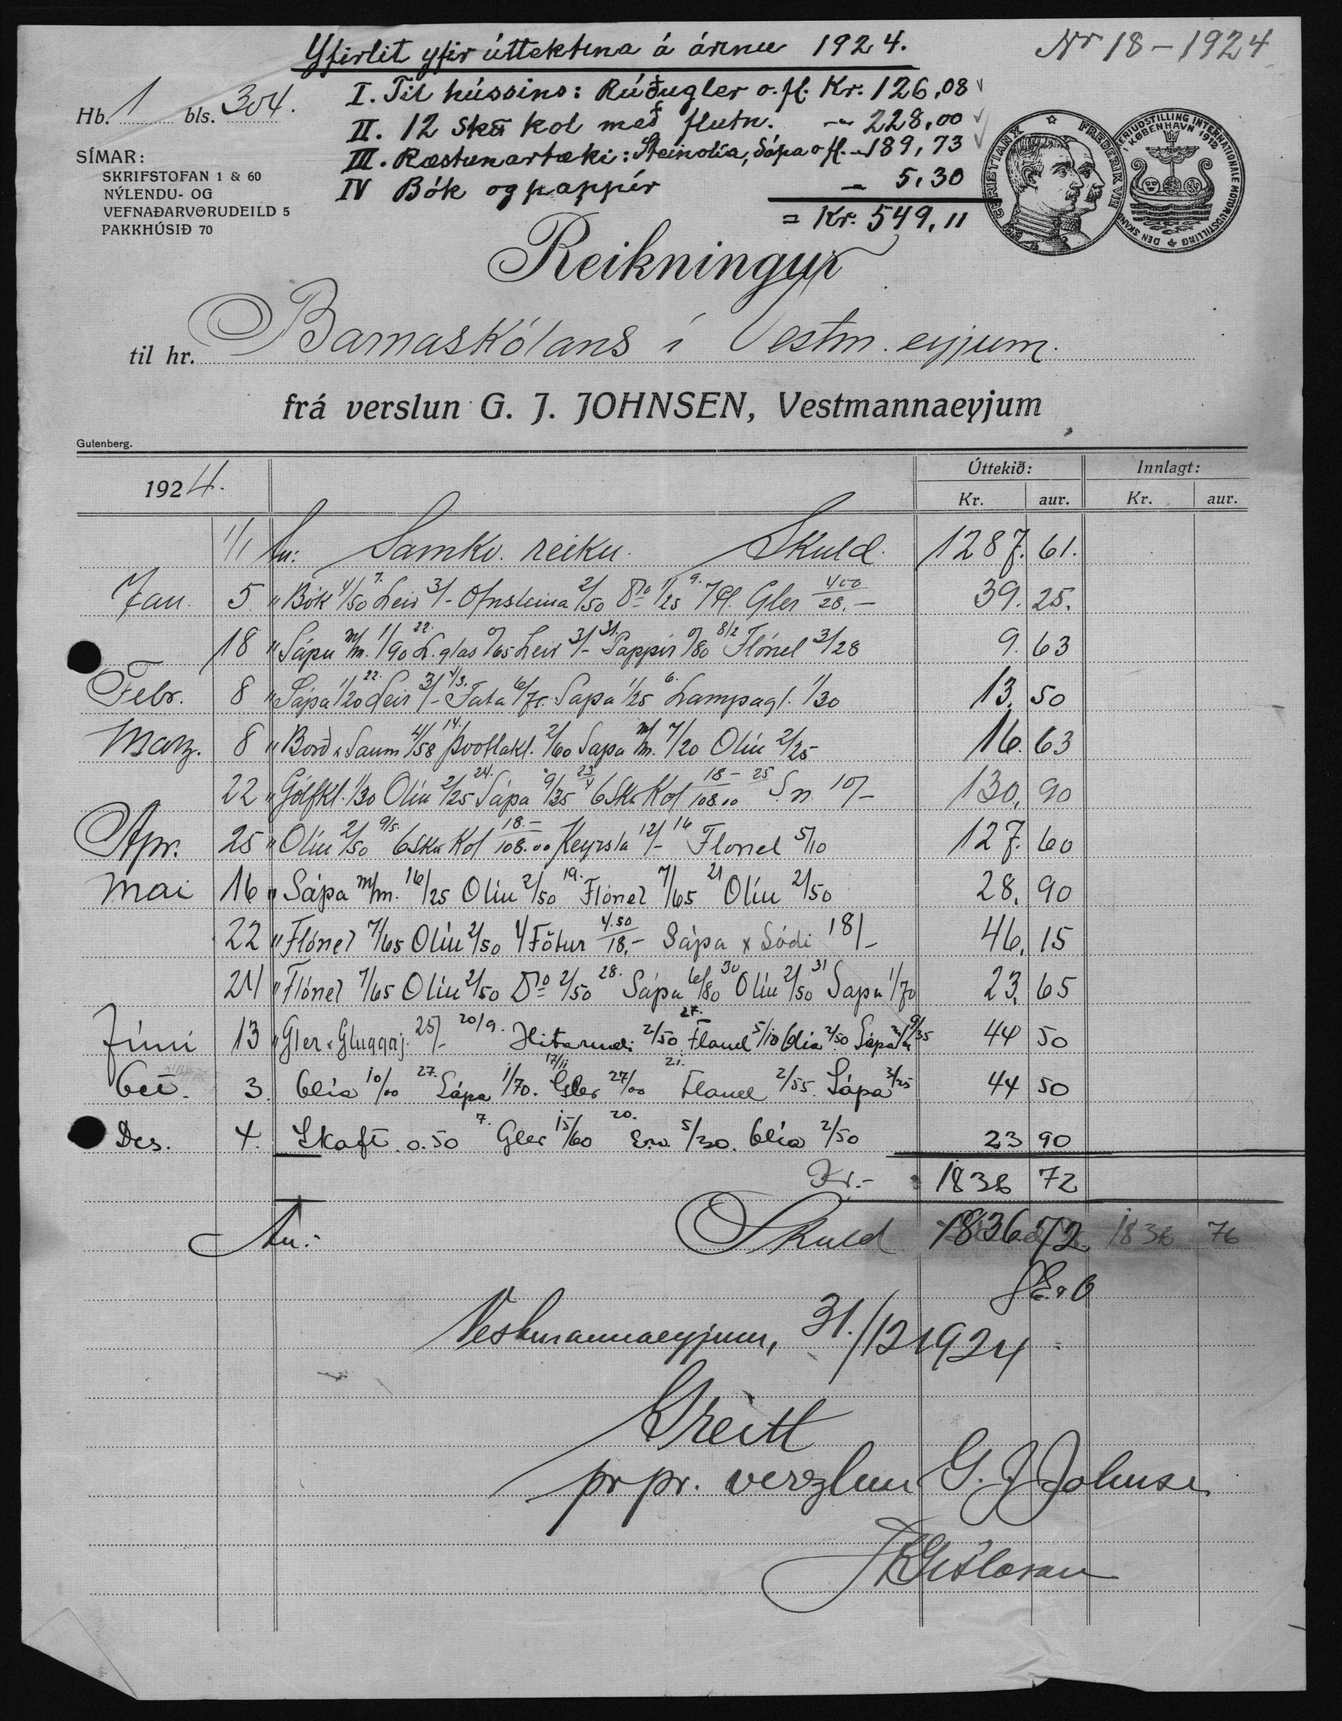 Yfirlit yfir úttektina á árinu 1924.
Nr 18 - 1924
I. Til hússins: Rúðugler o.fl. Kr. 126,08
II. 12 skt kol með flutn. -„- 228,00
III. Ræstunartæki: Steinolía, Sápa ofl. -„- 189,73
IV Bók og pappír - 5,30
= Kr. 549,11
Hb. 1 bls. 304.
SÍMAR:
SKRIFSTOFAN 1 & 60
NÝLENDU- OG
VEFNAÐARVÖRUDEILD 5
PAKKHÚSIÐ 70
CHRISTIAN X ☆ FREDERIK VIII
KØBENHAVN 1912
Reikningur
til hr. Barnaskólans í Vestm.eyjum.
frá verslun G. J. JOHNSEN, Vestmannaeyjum
Gutenberg.
1924. Úttekið: Innlagt:
Kr. aur. Kr. aur.
1/1 An: Samkv. reikn. Skuld. 1287. 61.
Jan. 5 " Bók 1/50 7. Leir 3/- Ofnsteina 2/50 Do 1/25 9. 7 Pl. Gler 4.00/28.- 39. 25.
18 " Sápu m/m. 1/90 22. L.glas 0/65 Leir 3/- 31. Pappír 0/80 8/2 Flónel 3/28 9. 63
Febr. 8 " Sápa 1/20 22. Leir 3/- 4/3. Fata 6/75 Sápa 1/25 6. Lampagl. 1/30 13. 50
Marz. 8 " Borð & Saum 4/58 14. Þvottakl. 2/60 Sápa m/m. 7/20 Olíu 2/25 16. 63
22 " Gólfkl. 1/30 Olíu 2/25 24. Sápa 9/35 23/4 6 Skt Kol 18-/108.00 25 S.n 10/- 130. 90
Apr. 25 " Olíu 2/50 9/5. 6 Skt Kol 18.-/108.00 Keyrsla 12/- 16 Flonel 5/10 127. 60
Mai 16 " Sápa m/m. 16/25 Olíu 2/50 19. Flónel 7/65 21 Olíu 2/50 28. 90
22 " Flónel 7/65 Olíu 2/50 4 Fötur 4.50/18.- Sápa & Sódi 18/- 46. 15
24 " Flónel 7/65 Olíu 2/50 Do 2/50 28. Sápu 6/80 30 Olíu 2/50 31 Sapa 1/70 23. 65
Júní 13 " Gler & Gluggaj. 25/- 20/9. 2/50 27. Flanel 5/10 Olía 2/50 Sápa 9/35 44 50
Oct. 3. Olía 10/00 27. Sápa 1/70. 17/11 Gler 27/00 21. Flanel 2/55. Sápa 3/25 44 50
Des. 4. Skaft 0.50 7. Gler 15/60 20. 5/30. Olía 2/50 23 90
Kr.- 1836 72
An:- Skuld 1836 72. 1836 76
S.E.&O
Vestmannaeyjum, 31./12 1924
Greitt
pr pr. verzlun G. J. Johnsen